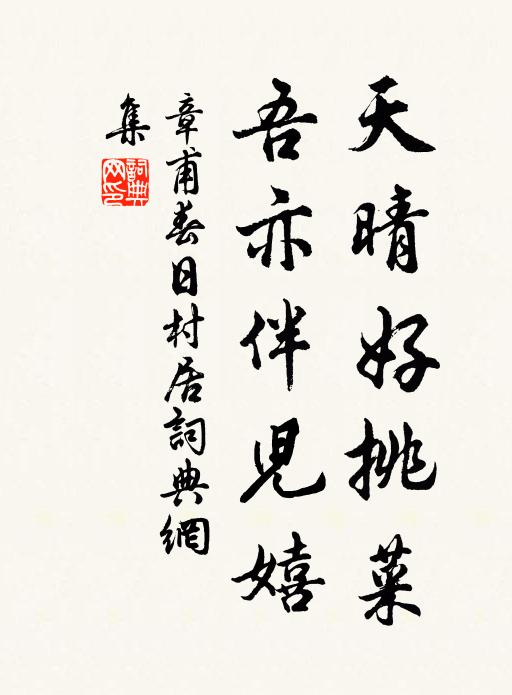 天晴好挑菜
吾亦伴兒嬉
章甫春日村居詞典網
集
詞典网印